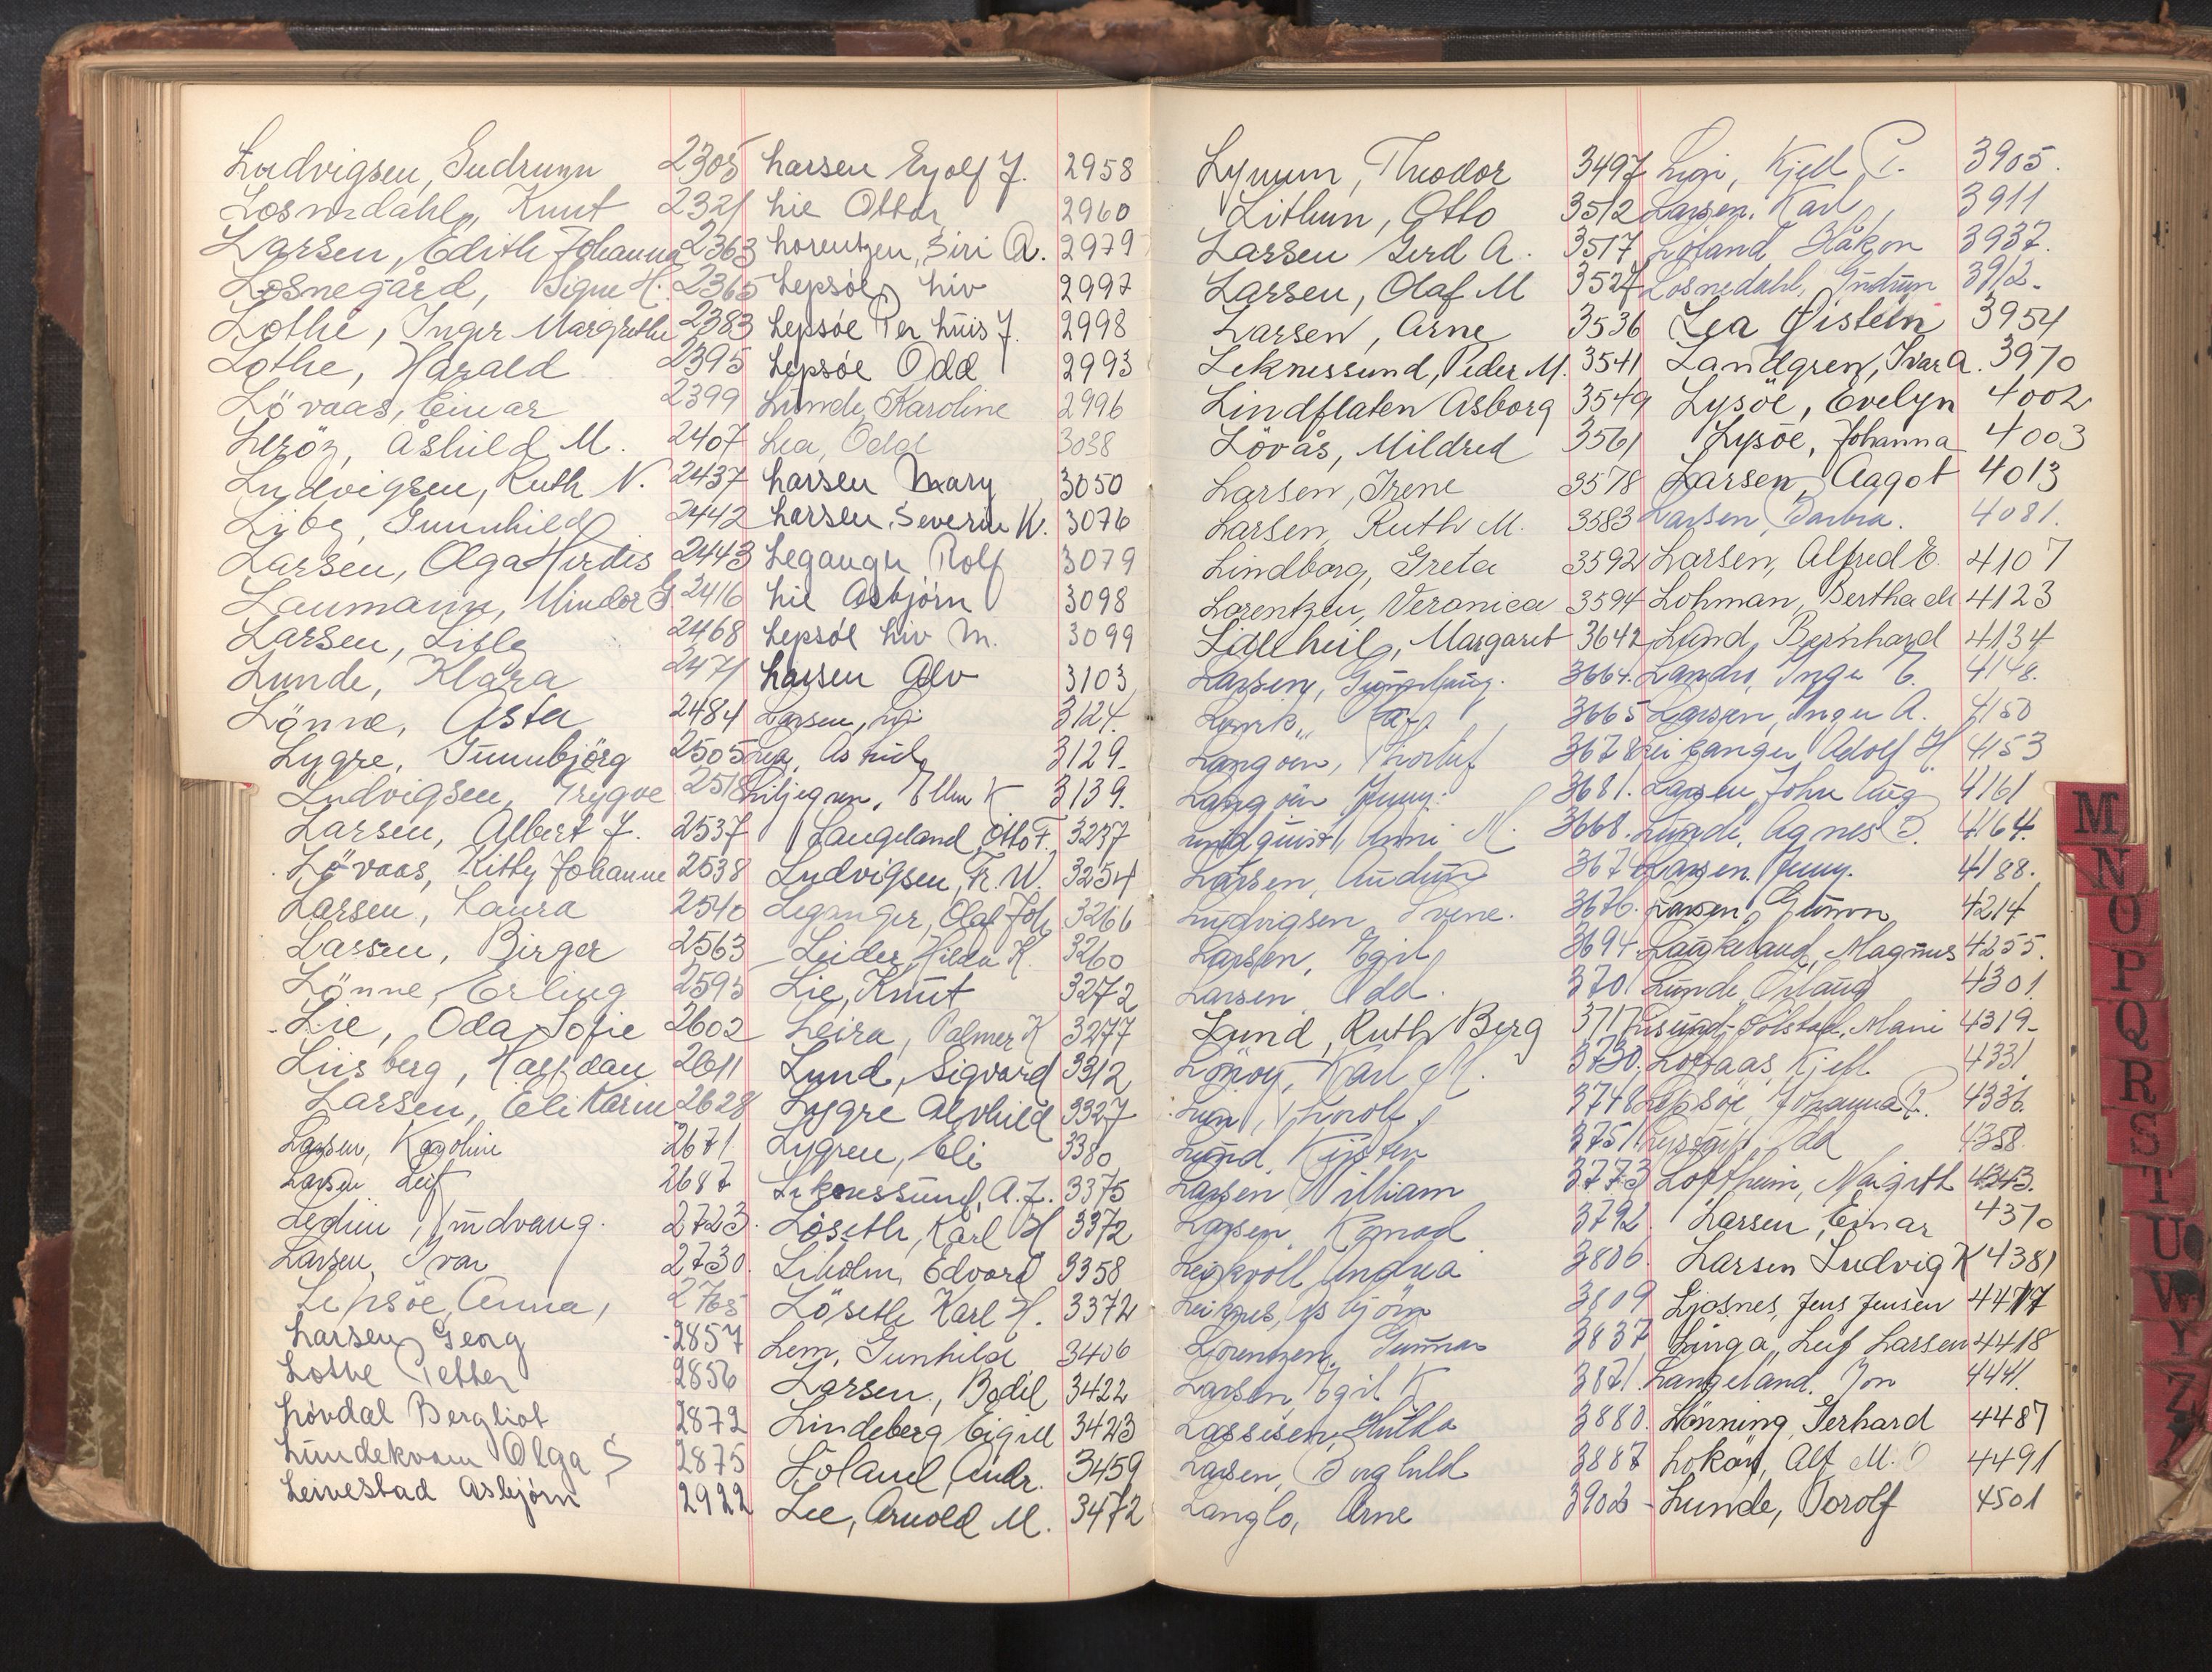 Ludvigsen, Gudrunn 2305
Losnedahl, Knut 2321
Larsen, Edith Johanna 2363
Losnegård, Signe H. 2365
Lothe, Inger Margrethe 2383
Lothe, Harald 2395
Lövaas, Einar 2399
Leröy, Åshild M. 2407
Ludvigsen, Ruth N. 2437
Lyby, Gunnhild 2442
Larsen, Olga Herdis 2443
Laumann, Mindor G. 2416
Larsen, Lilly 2468
Lunde, Klara 2471
Lönne, Asta 2484
Lygre, Gunnbjörg 2505
Ludvigsen, Trygve 2518
Larsen, Albert J. 2537
Lövaas, Kitty Johanne 2538
Larsen, Laura 2540
Lassen, Birger 2563
Lönne, Erling 2595
Lie, Oda Sofie 2602
Liisberg, Halfdan 2611
Larsen, Eli Karin 2628
Larsen, Karoline 2671
Larsen Leif 2687
2723.
Larsen, Ivar 2730
Lepsöe, Anna, 2765
Larsen Georg 2857
Lothe Petter 2856
Lövdal Bergliot 2872
Lundekvam Olga S 2875
Leivestad Asbjørn 2922
Larsen Eyolf J. 2958
Lie Ottar 2960
Lorentzen, Siri A. 2979
Lepsöe Liv 2997
Lepsöe Per Luis J. 2998
Lepsöe Odd 2993
Lunde, Karoline 2996
Lea, Odd 3038
Larsen Mary 3050
Larsen, Severin K. 3076
Legangér Rolf 3079
Lie Asbjørn 3098
Lepsöe Liv M. 3099
Larsen Alv 3103
Larsen, 3124.
Lea, Astrid 3129.
Liljegren, Ellen K 3139.
Langeland, Otto F. 3237
Ludvigsen, Fr. W. 3254
Leganger, Olaf Joh 3266
Leider, Hilda K. 3260
Lie, Knut 3272
Leira, Palmer K 3277
Lund, Sigvard 3312
Lygre Alvhild 3327
Lygren, Eli 3380
Leknessund, A. J. 3375
Löseth, Karl H 3372
Liholm, Edvard 3358
Löseth Karl H. 3372
Lem, Gunhild 3406
Larsen, Bodil 3422
Lindeberg Eigill 3423
Löland, Andr. 3459
Lee, Arnold M. 3472
Lynum, Theodor 3497
Lithun, Otto 3512
Larsen Gerd A. 3517
Larsen, Olaf M 3527
Larsen, Arne 3536
Leknessund, Peder M. 3541
Lindflaten Asborg 3549
Lövås, Mildred 3561
Larsen, Irene 3578
Larsen, Ruth M. 3583
Lindborg, Greta 3592
Lorentzen, Veronica 3594
Lidlheil, Margaret 3642
Larsen, 3664.
3665
Langöen, Thorleif 3678
Langöen Jenny. 3681.
Lindquist, Anni M. 3668.
Larsen, Audun 3674
Ludvigsen, Svene. 3676.
Larsen, Egil 3694
Larsen Odd. 3701
Lund, Ruth Berg 3717
Lönöy, Karl M. 3730.
Lien, Thorolf 3748
Lund, Kirsten 3751
Larsen William 3773
Larsen, Konrad 3792
Leikvoll Andrea 3806
Leiknes, Asbjörn 3809
Lorentzen, Gunnar 3837
Larsen, Egil K 3871.
Lassesen, Hulda 3880.
Larsen, Borghild 3887
Langlo, Arne 3902
Kjell P. 3905.
Larsen, Karl 3911
Loland Håkon 3937.
Losnedahl, Gudrun 3912.
Lea Øistein 3954
Landgren, Ivar A. 3970
Lysöe, Evelyn 4002
Lysöe, Johanna 4003
Larsen, Aagot 4013
Larsen, Barbra. 4081.
Larsen, Alfred E. 4107
Lohman, Bertha M 4123
Lund, Bernhard 4134
Landro, Inge T. 4148.
Larsen, Inger A. 4150
Leiganger Adolf H. 4153
Larsen, John Aug 4161
Lunde, Agnes 4164.
Larsen. Jenny. 4188.
Larsen, Gunvor 4214
Laukeland, Magnus 4255.
Lunde Oslaug 4301
Mari 4319-
Lövaas, Kjell 4331
Lepsöe, Johanna P. 4336.
Odd 4358
Loftheim, Margith 4343.
Larsen, Einar 4370
Larsen Ludvig K 4381
Ljosnes, Jens Jensen 4417
Linga, Leif Larsen 4418
Langeland. Jon 4441.
Lönning, Gerhard 4487
Loköy, Alf M. O 4491
Lunde, Torolf 4501
M
N
O
P
Q
R
S
T
U
W
Y
Z